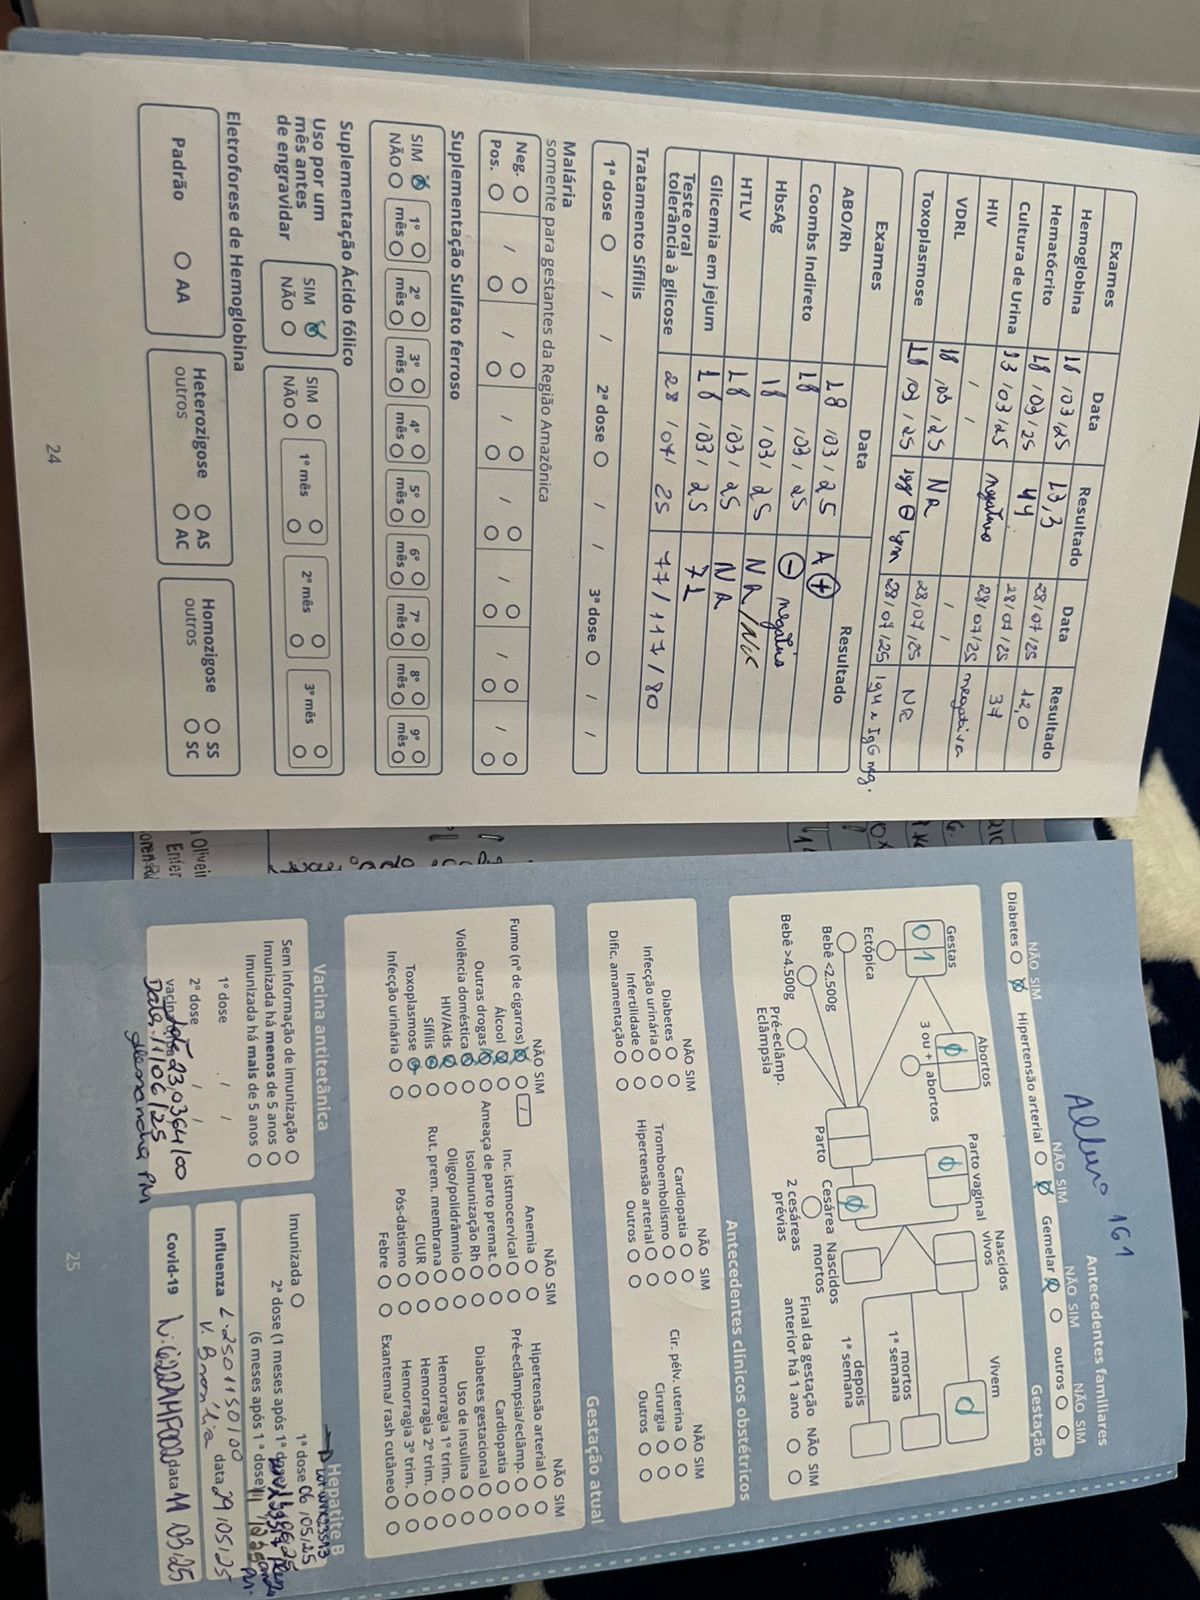 Exames Data Resultado Data Resultado
Hemoglobina 18/03/25 13,3 28/07/25 12,0
Hematócrito 18/03/25 44 28/07/25 37
Cultura de Urina 13/03/25 negativo 28/07/25 negativa
HIV / / / /
VDRL 18/03/25 NR 28/07/25 NR
Toxoplasmose 18/03/25 Igg Igm 28/07/25 IgM e IgG neg.
Exames Data Resultado
ABO/Rh 18/03/25 A +
Coombs Indireto 18/03/25 - negativo
HbsAg 18/03/25 NR/
HTLV 18/03/25 NR
Glicemia em jejum 18/03/25 72
Teste oral
tolerância à glicose 28/07/25 77/117/80
Tratamento Sífilis
1ª dose / / 2ª dose / / 3ª dose / /
Malária
somente para gestantes da Região Amazônica
Neg. / / / / / / /
Pos.
Suplementação Sulfato ferroso
SIM 1º 2º 3º 4º 5º 6º 7º 8º 9º
NÃO mês mês mês mês mês mês mês mês mês
Suplementação Ácido fólico
Uso por um
mês antes
de engravidar
SIM
NÃO
SIM
NÃO
1º mês 2º mês 3º mês
Eletroforese de Hemoglobina
Padrão AA
Heterozigose
outros
AS
AC
Homozigose
outros
SS
SC
24
161
Antecedentes familiares
NÃO SIM NÃO SIM NÃO SIM NÃO SIM
Diabetes Hipertensão arterial Gemelar outros
Gestação
Gestas Abortos Parto vaginal Nascidos vivos Vivem
01 0 0 0
3 ou + abortos
Ectópica
Bebê <2.500g
Bebê >4.500g
Pré-eclâmp.
Eclâmpsia
Parto Cesárea
0
2 cesáreas
prévias
Nascidos
mortos
mortos
1ª semana
depois
1ª semana
Final da gestação
anterior há 1 ano
NÃO SIM
Antecedentes clínicos obstétricos
NÃO SIM NÃO SIM NÃO SIM
Diabetes Cardiopatia Cir. pélv. uterina
Infecção urinária Tromboembolismo Cirurgia
Infertilidade Hipertensão arterial Outros
Dific. amamentação Outros
Gestação atual
NÃO SIM NÃO SIM NÃO SIM
Fumo (nº de cigarros) Anemia Hipertensão arterial
Álcool Inc. istmocervical Pré-eclâmpsia/eclâmp.
Outras drogas Ameaça de parto premat. Cardiopatia
Violência doméstica Isoimunização Rh Diabetes gestacional
HIV/Aids Oligo/polidrâmnio Uso de insulina
Sífilis Rut. prem. membrana Hemorragia 1º trim.
Toxoplasmose CIUR Hemorragia 2º trim.
Infecção urinária Pós-datismo Hemorragia 3º trim.
Febre Exantema/ rash cutâneo
Vacina antitetânica
Sem informação de imunização
Imunizada há menos de 5 anos
Imunizada há mais de 5 anos
1º dose / /
2º dose / /
vacina
Data: 11/06/25
Hepatite B
Imunizada
1ª dose 06/05/25
2ª dose (1 meses após 1ª dose)
(6 meses após 1ª dose)
Influenza
data 29/05/25
Covid-19 data
25